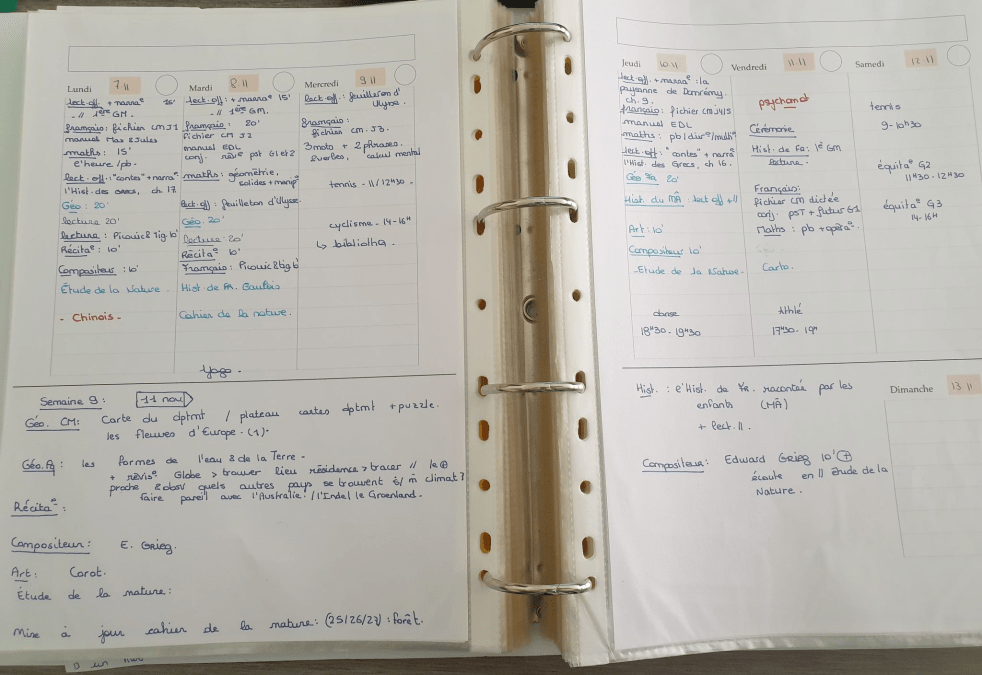 Lundi 7.11
Lect. off. + narra° 15'
- // 1ère GM.
français: fichier CM J1
manuel Max & Jules
maths: 15'
l'heure / pb.
Lect. off.: "contes" + narra°
l'Hist. des Grecs, ch. 17.
Géo: 20'
lecture 20'
lecture: Picouic & Tig. 10'
Récita°: 10'
Compositeur: 10'
Étude de la Nature.
- Chinois -
Mardi 8.11
Lect. off: + narra° 15'
- // 1ère GM.
français: 20'
fichier CM J2
manuel EDL
conj. révis pst G1 et 2
maths: géométrie,
solides + manip°
Lect. off.: feuilleton d'Ulysse.
Géo. 20'
Lecture: 20'
Récita° 10'
Français: Picouic & tig 10'
Hist. de FR. Gaulois
Cahier de la nature.
Mercredi 9.11
Lect. off.: feuilleton d'
Ulysse.
Français:
fichier CM. J3.
3 mots + 2 phrases.
2 verbes, calcul mental
tennis - 11/12H30 -
cyclisme - 14-16H
↳ bibliothq.
Yoga -
Semaine 9: 11 nov
Géo. CM: Carte du dptmt / plateau cartes dptmt + puzzle.
les fleuves d'Europe. (1).
Géo. Fq: les formes de l'eau & de la Terre -
+ révis° Globe > trouver lieu résidence > tracer // le ⊕
proche & obs/ quels autres pays se trouvent s/ m̂ climat?
Faire pareil avec l'Australie / l'Inde / le Groenland.
Récita°:
Compositeur: E. Grieg.
Art: Corot.
Étude de la nature:
Mise à jour cahier de la nature: (25/26/27): forêt.
Jeudi 10.11
Lect. off. + narra°: la
paysanne de Domrémy.
ch. 9.
français: fichier CM J4/5
manuel EDL
maths: pb / div° / mult°
Lect. off: "contes" + narra°
l'Hist. des Grecs, ch 16.
Géo Fq 20'
Hist du MÂ: lect off + //
Art: 10'
Compositeur 10'
- Etude de la Nature -
danse
18H30 - 19H30
Vendredi 11.11
psychomot
Cérémonie
Hist. de Fr: 1è GM
Lecture.
Français:
fichier CM dictée
conj. psT + futur G1
Maths: pb + opéra°.
Carto.
Athlé
17H30 - 19H
Samedi 12.11
tennis
9-10H30
équita° G2
11H30 - 12H30
équita° G3
14-16H
Hist.: l'Hist. de FR. racontée par les
enfants (MÂ)
+ lect. //.
Compositeur: Edward Grieg 10' ⊕
écoute en // étude de la
Nature.
Dimanche 13.11